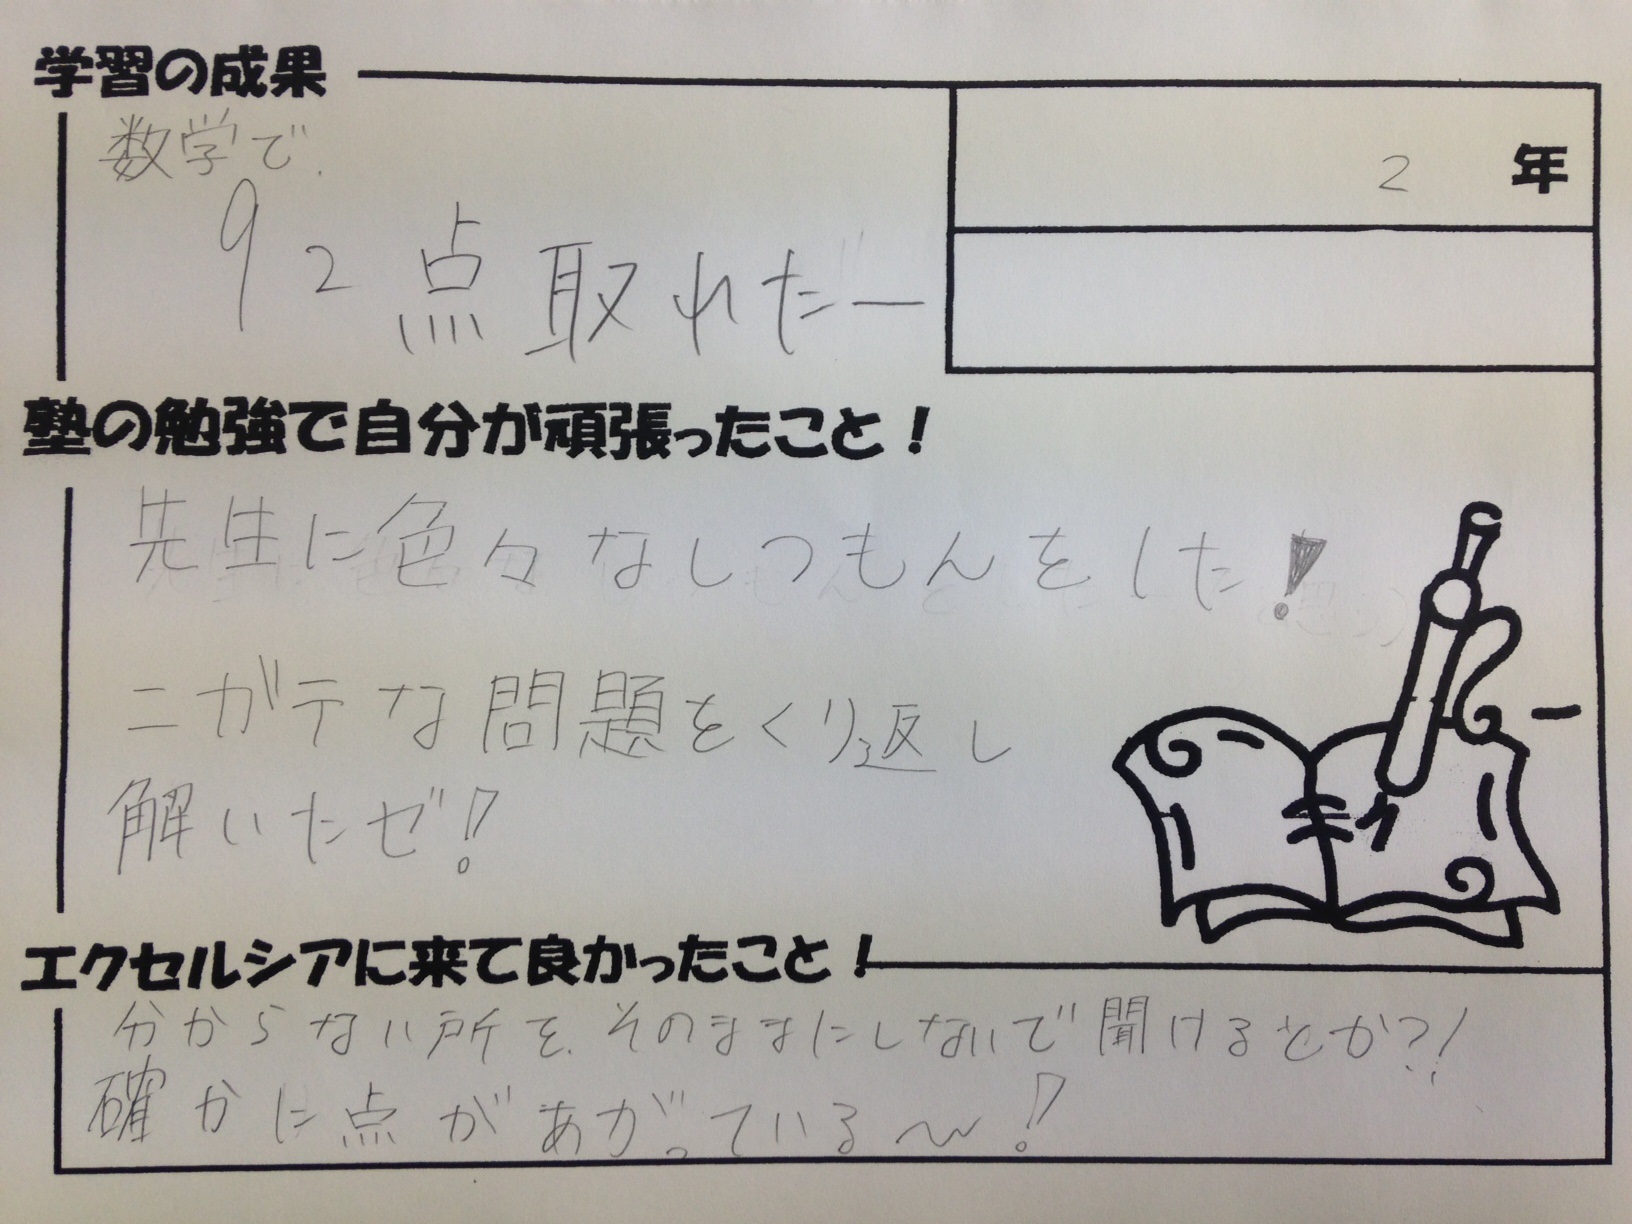 学習の成果
2 年
数学で、
92点取れたー
塾の勉強で自分が頑張ったこと!
先生に色々なしつもんをした!
ニガテな問題をくり返し
解いたゼ!
エクセルシアに来て良かったこと!
分からない所を、そのままにしないで聞けるとか?!
確かに点があがっている〜!